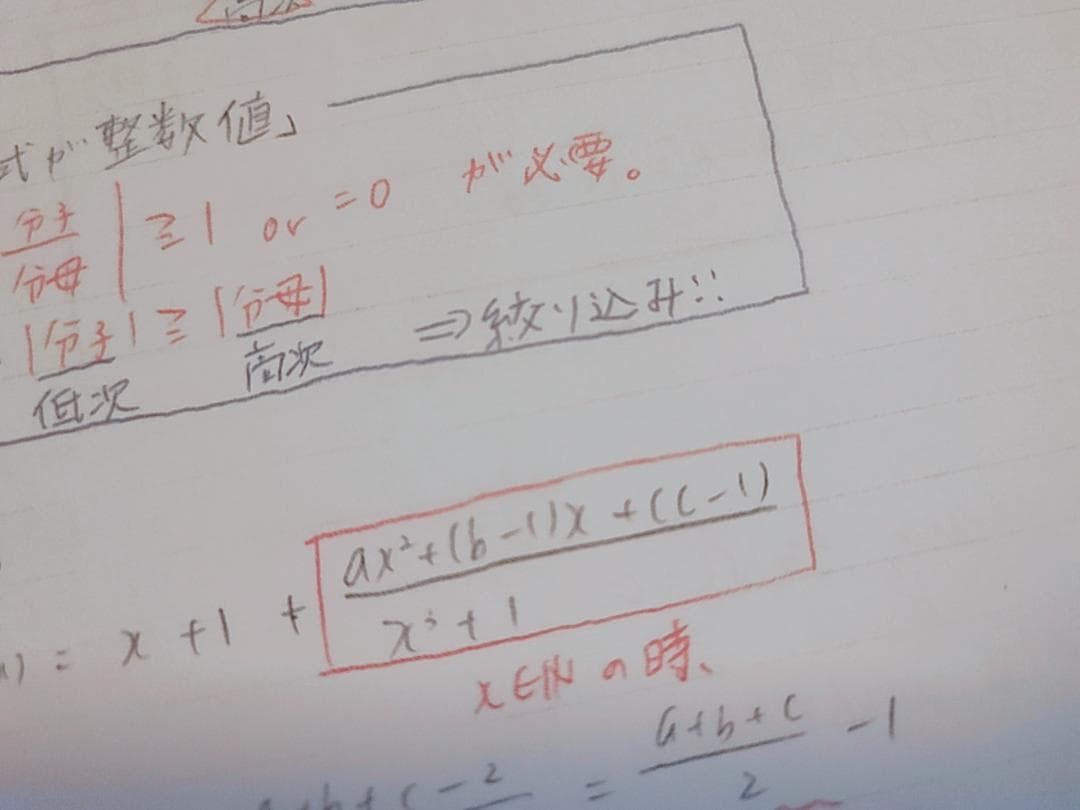 式が整数値」
|分子/分母| ≧ 1 or = 0 が必要。
|分子| ≧ |分母| ⇒ 絞り込み!!
低次 高次
) = x + 1 + (ax² + (b-1)x + (c-1))/(x³ + 1)
x∈ℕの時、
a+b+c-2 = (a+b+c)/2 - 1